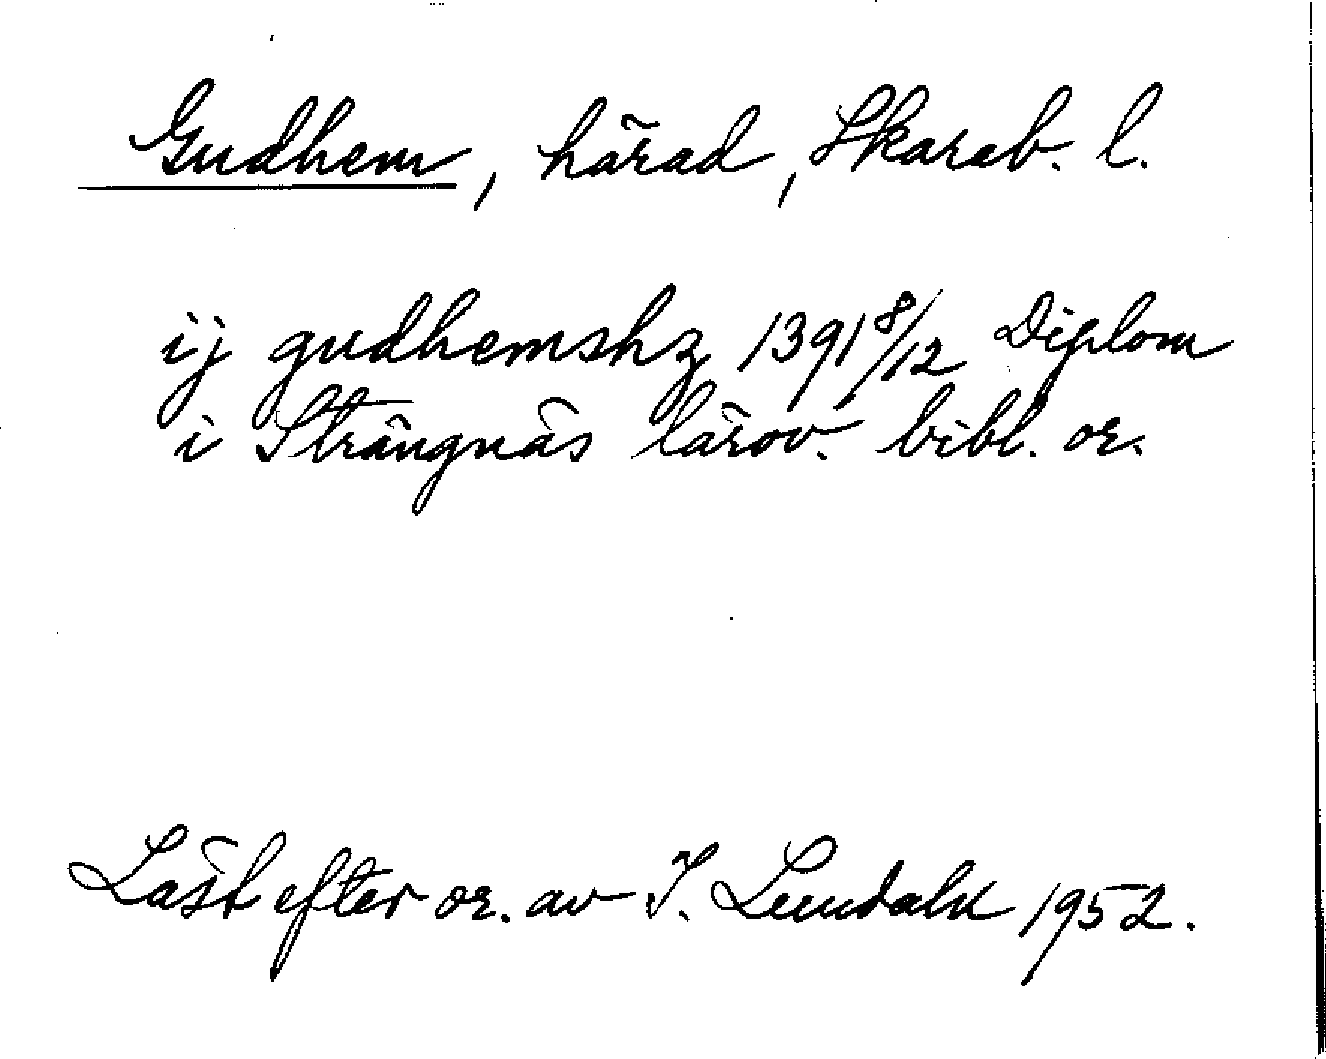 Gudhem, härad, Skarab. l.
ij gudhemshz 1391 8/12 Diplom
i Strängnäs lärov. bibl. or.
Läst efter or. av I. Lundahl 1952.